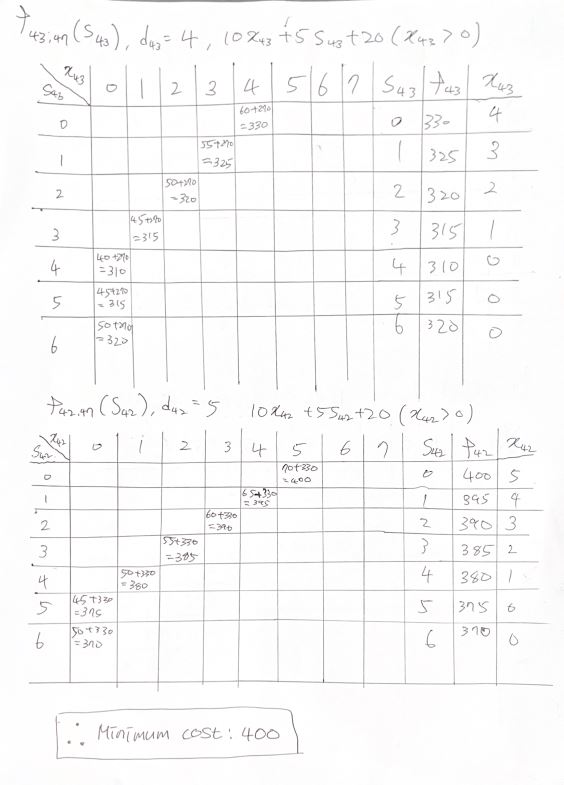 P43,47(S43), d43 = 4, 10x43 + 5S43 + 20(x43 > 0)
x43 S43 0 1 2 3 4 5 6 7 S43 P43 x43
0 60+270 =330 0 330 4
1 55+270 =325 1 325 3
2 50+270 =320 2 320 2
3 45+270 =315 3 315 1
4 40+270 =310 4 310 0
5 45+270 =315 5 315 0
6 50+270 =320 6 320 0
P42,47(S42), d42 = 5 10x42 + 5S42 + 20(x42 > 0)
x42 S42 0 1 2 3 4 5 6 7 S42 P42 x42
0 70+330 =400 0 400 5
1 65+330 =395 1 395 4
2 60+330 =390 2 390 3
3 55+330 =385 3 385 2
4 50+330 =380 4 380 1
5 45+330 =375 5 375 0
6 50+330 =370 6 370 0
∴ Minimum cost: 400